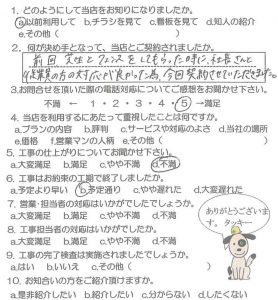 1. どのようにして当店をお知りになりましたか。
a以前利用して bチラシを見て c看板を見て d知人の紹介
e.その他( )
2. 何が決め手となって、当店とご契約されましたか。
前回芝生とフェンスをしてもらった時に、社長さんと
従業員の方の対応が良かった為、今回契約させていただきました。
3.お問合せを頂いた際の電話対応についてご感想をお聞かせ下さい。
不満 ← 1・2・3・4・5 →満足
4. 当店を利用するにあたって重視したことは何ですか。
a.プランの内容 b.評判 c.サービスや対応のよさ d.当社の場所
e.価格 f.営業マンの人柄 e.その他( )
5. 工事の仕上がりについてお聞かせ下さい。
a.大変満足 b.満足 c.やや不満 d.不満
6. 工事はお約束の工期で終了しましたか。
a.予定より早い b.予定通り c.やや遅れた d.大変遅れた
7. 営業・担当者の対応はいかがでしたでしょうか。
a.大変満足 b.満足 c.やや不満 d.不満
8. 工事担当者の対応はいかがでしたか。
a.大変満足 b.満足 c.やや不満 d.不満
9. 工事の完了検査は実施されましたでしょうか。
a.はい b.いいえ c.その他( )
10. お知合いの方をご紹介頂けますか。
a.是非紹介したい b.紹介したい c.分からない d.したくない
ありがとうございます。
タッキー